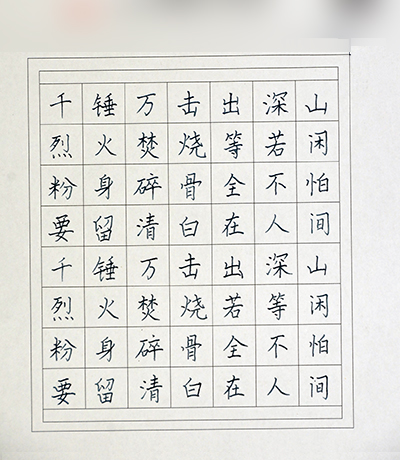 千锤万击出深山
烈火焚烧等若闲
粉身碎骨全不怕
要留清白在人间
千锤万击出深山
烈火焚烧若等闲
粉身碎骨全不怕
要留清白在人间